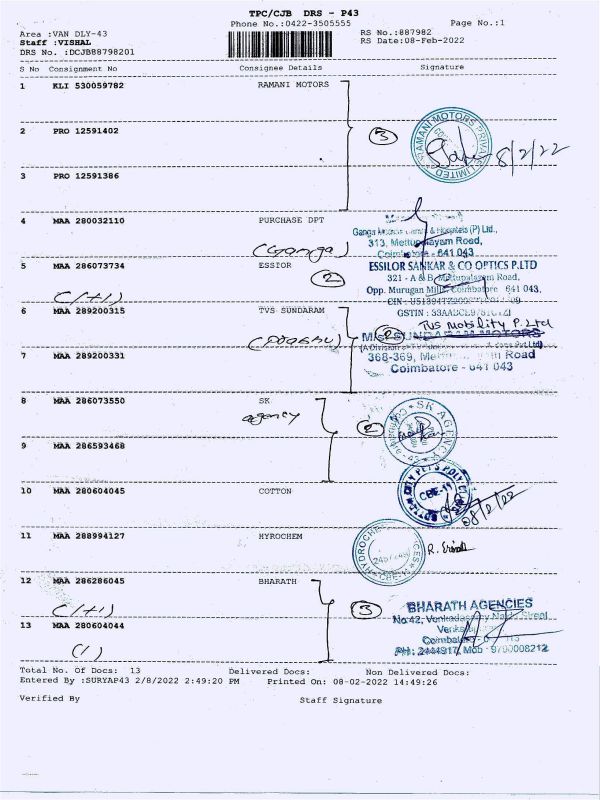 TPC/CJB DRS - P43
Phone No.:0422-3505555
Page No.:1
Area :VAN DLY-43
RS No.:887982
Staff :VISHAL
RS Date:08-Feb-2022
DRS No. :DCJB88798201
S No Consignment No Consignee Details Signature
1 KLI 530059782 RAMANI MOTORS
RAMANI MOTORS PRIVATE LIMITED
3
8/2/22
2 PRO 12591402
3 PRO 12591386
4 MAA 280032110 PURCHASE DPT
(Ganga)
& Hospitals (P) Ltd.,
313, Mettupalayam Road,
Coimbatore - 641 043
5 MAA 286073734 ESSIOR
(+1)
2
ESSILOR SANKAR & CO OPTICS P.LTD
321 - A & B, Mettupalayam Road,
Opp. Murugan Mills, Coimbatore 641 043.
6 MAA 289200315 TVS SUNDARAM
2
TVS mobility P. Ltd
SUNDARAM MOTORS
7 MAA 289200331
368-369, Road
Coimbatore - 641 043
8 MAA 286073550 SK
agency
2
SK AGENCY
9 MAA 286593468
10 MAA 280604045 COTTON
08/2/22
11 MAA 288994127 HYROCHEM
12 MAA 286286045 BHARATH
(+1)
3
BHARATH AGENCIES
No.42, Venkadasamy Naidu Street
13 MAA 280604044
(1)
PH: 2444917, Mob : 9790008212
Total No. Of Docs: 13 Delivered Docs: Non Delivered Docs:
Entered By :SURYAP43 2/8/2022 2:49:20 PM Printed On: 08-02-2022 14:49:26
Verified By Staff Signature